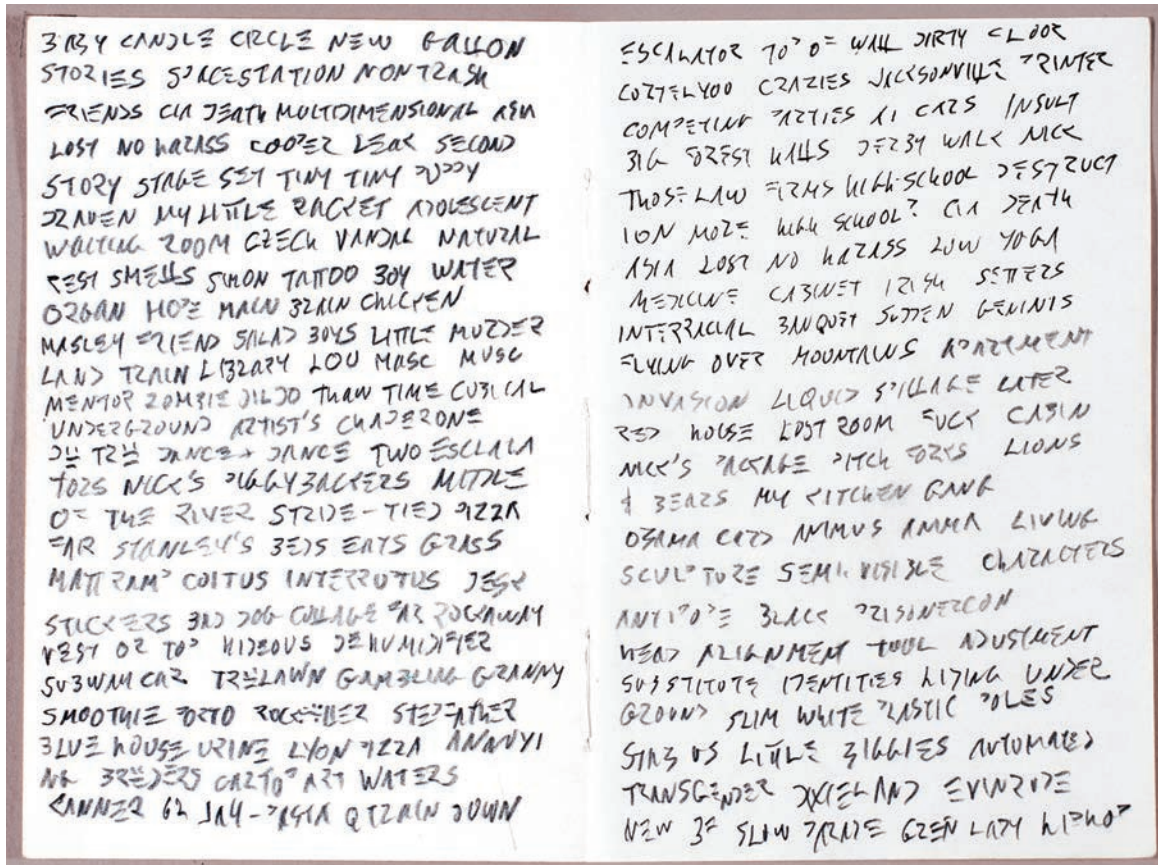 BABY CANDLE CIRCLE NEW GALLON
STORIES SPACESTATION MONTRASH
FRIENDS CIA DEATH MULTIDIMENSIONAL ASIA
LOST NO HARASS COOPER LEAK SECOND
STORY STAGE SET TINY TINY PUPPY
DRAVEN MY LITTLE RACKET ADOLESCENT
WAITING ROOM CZECH VANDAL NATURAL
REST SMELLS SIMON TATTOO BOY WATER
ORGAN HOPE MAIN BRAIN CHICKEN
MASLEY FRIEND SALAD BOYS LITTLE MURDER
LAND TRAIN LIBRARY LOU MASC MUSC
MENTOR ZOMBIE DILDO THAW TIME CUBICAL
UNDERGROUND ARTIST'S CHAPERONE
DANCE + DANCE TWO ESCLALA
TORS NICK'S PIGGYBACKERS MIDDLE
OF THE RIVER STRIDE-TIED PIZZA
FAR STANLEY'S BEDS EATS GRASS
MATT RAMP COITUS INTERRUPTUS DESK
STICKERS BAD DOG COLLAGE FAR ROCKAWAY
VEST OR TOP HIDEOUS DEHUMIDIFIER
SUBWAY CAR LAWN GAMBLING GRANNY
SMOOTHIE PORTO STEPFATHER
BLUE HOUSE URINE LYON PIZZA ANNUYI
NG BREEDERS CARTOP ART WATERS
TANNER JAY-PASIA Q TRAIN DOWN
ESCALATOR TOP OF WALL DIRTY FLOOR
CORTELYOO CRAZIES JACKSONVILLE PRINTER
COMPETING PARTIES AI CARS INSULT
BIG FOREST HILLS DERBY WALK NICK
THOSE LAW FIRMS HIGH-SCHOOL DESTRUCT
ION MORE HIGH SCHOOL? CIA DEATH
ASIA LOST NO HARASS LOW YOGA
MEDICINE CABINET IRISH SETTERS
INTERRACIAL BANQUET SUDDEN GEMINIS
FLYING OVER MOUNTAINS APARTMENT
INVASION LIQUID SPILLAGE LATER
RED HOUSE LOST ROOM FUCK CABIN
NICK'S PACKAGE PITCH FORKS LIONS
& BEARS MY KITCHEN GANG
OBAMA CARD ANIMUS ANIMA LIVING
SCULPTURE SEMI VISIBLE CHARACTERS
ANTIPOPE BLACK PRISONERCON
HEAD ALIGNMENT TOOL ADUSTMENT
SUBSTITUTE IDENTITIES HIDING UNDER
GROUND SLIM WHITE PLASTIC POLES
STAB US LITTLE BIGGIES AUTOMATED
TRANSGENDER DIXIELAND EVINRUDE
NEW BF SLOW PARADE GREEN LADY HIPHOP